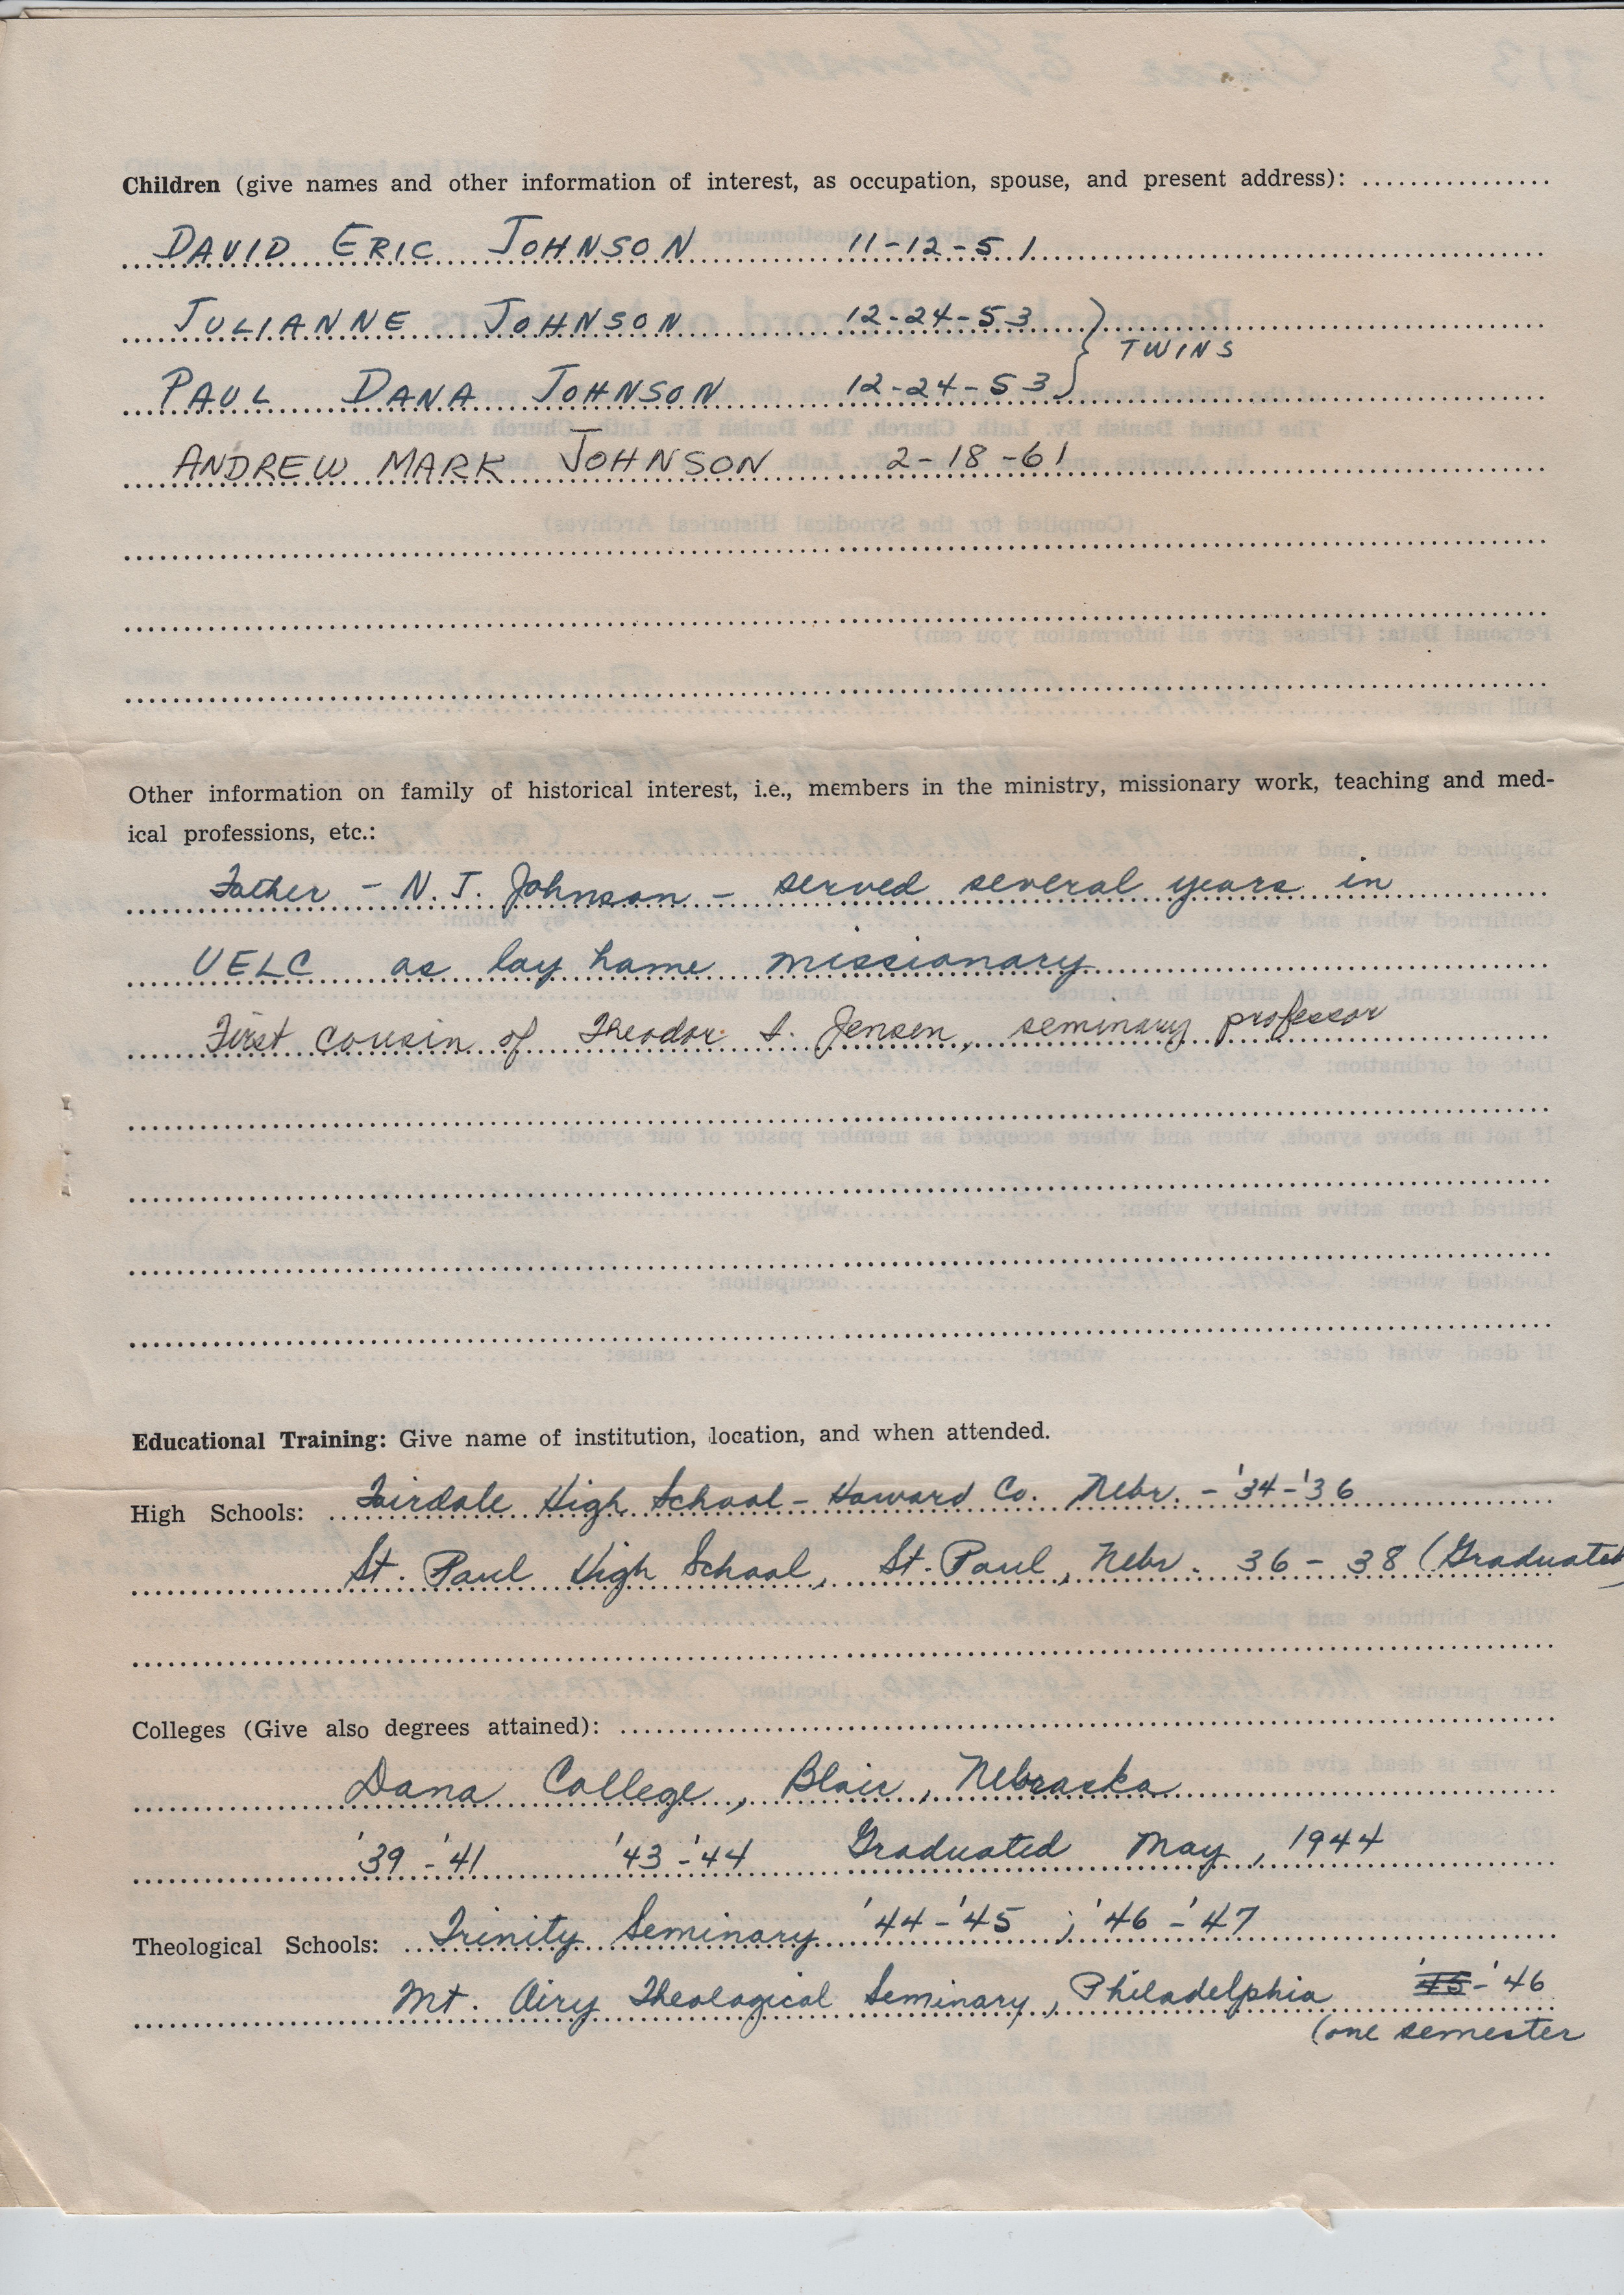 Children (give names and other information of interest, as occupation, spouse, and present address):
DAVID ERIC JOHNSON 11-12-51
JULIANNE JOHNSON 12-24-53
TWINS
PAUL DANA JOHNSON 12-24-53
ANDREW MARK JOHNSON 2-18-61
Other information on family of historical interest, i.e., members in the ministry, missionary work, teaching and med-
ical professions, etc.:
Father - N. J. Johnson - served several years in
UELC as lay home missionary
First cousin of Theodor I. Jensen, seminary professor
Educational Training: Give name of institution, location, and when attended.
High Schools: Fairdale High School - Howard Co. Nebr. - '34-'36
St. Paul High School, St. Paul, Nebr. 36 - 38 (Graduated)
Colleges (Give also degrees attained):
Dana College, Blair, Nebraska
'39 - '41 '43 - '44 Graduated May, 1944
Theological Schools: Trinity Seminary '44-'45 ; '46 - '47
Mt. Airy Theological Seminary, Philadelphia '45-'46
(one semester